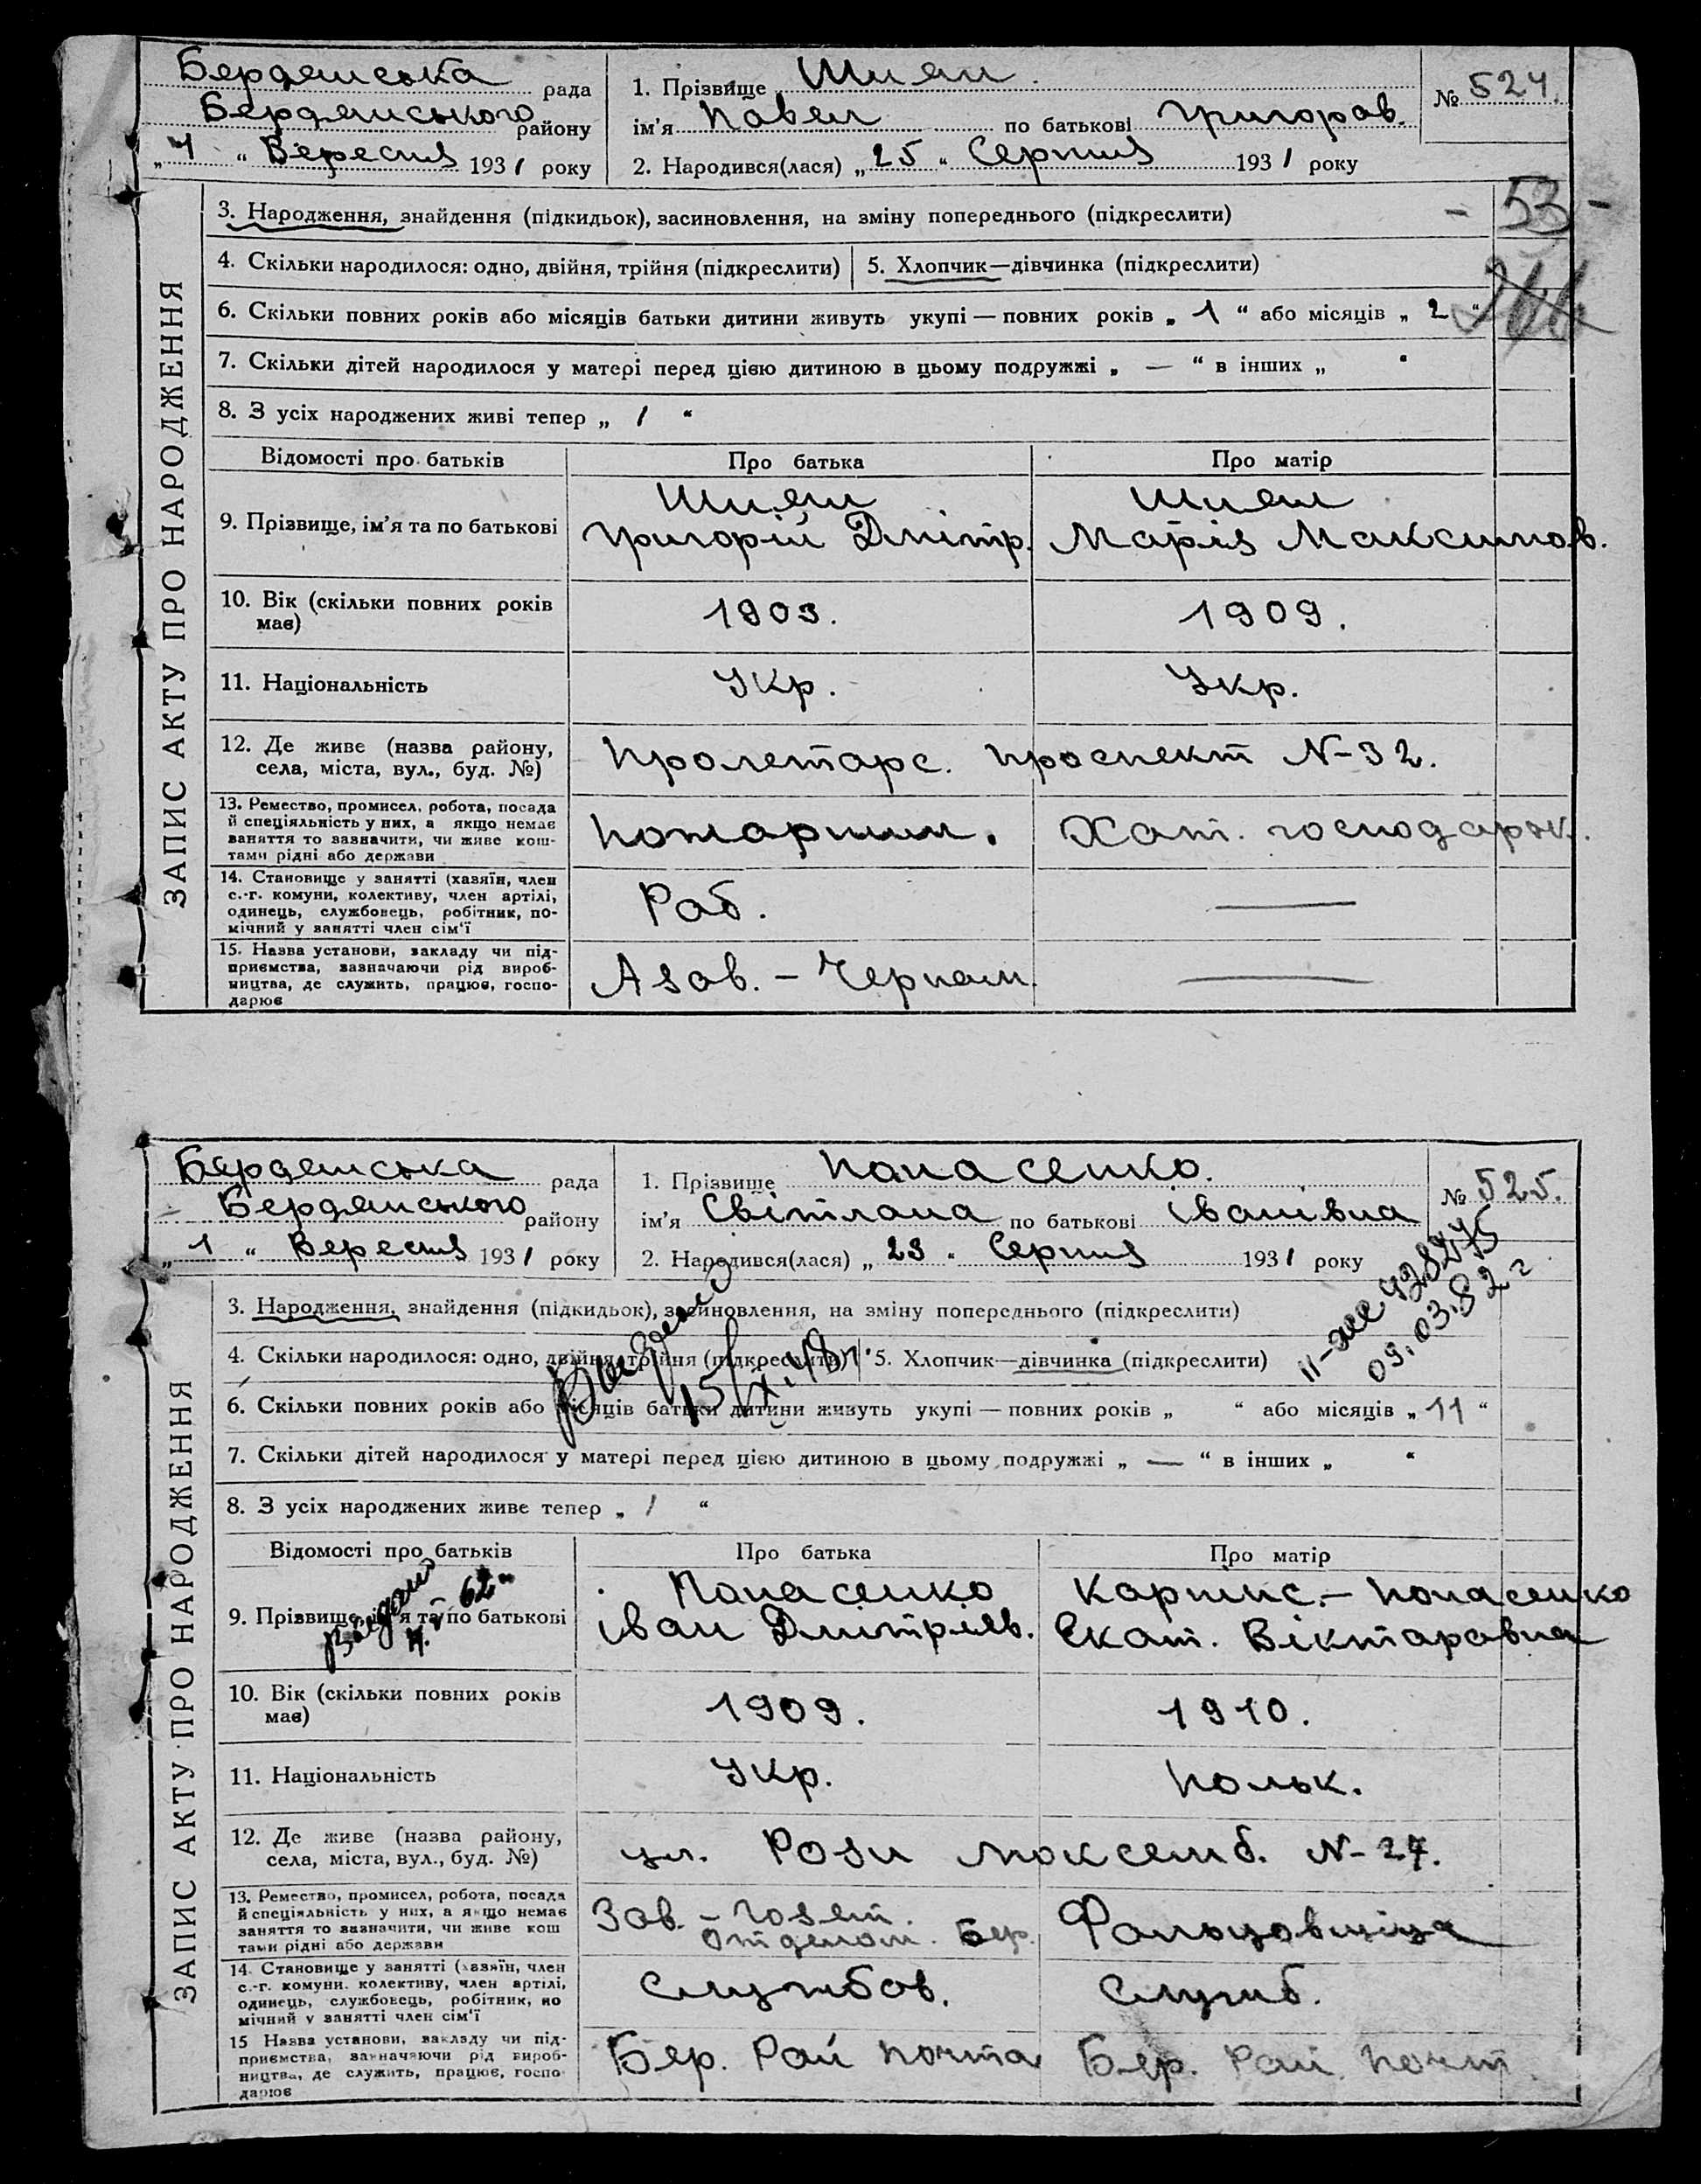 Бердянська рада
Бердянського району
„4“ Вересня 1931 року
1. Прізвище Шиян.
ім'я Павел по батькові Григоров.
2. Народився(лася) „25“ Серпня 1931 року
№ 524.
ЗАПИС АКТУ ПРО НАРОДЖЕННЯ
3. Народження, знайдення (підкидьок), засиновлення, на зміну попереднього (підкреслити)
- 53 -
4. Скільки народилося: одно, двійня, трійня (підкреслити) 5. Хлопчик—дівчинка (підкреслити)
6. Скільки повних років або місяців батьки дитини живуть укупі — повних років „ 1 “ або місяців „ 2 “
7. Скільки дітей народилося у матері перед цією дитиною в цьому подружжі „ — “ в інших „ “
8. З усіх народжених живі тепер „ 1 “
Відомості про батьків Про батька Про матір
9. Прізвище, ім'я та по батькові
Шиян
Григорій Дмітр.
Шиян
Марія Максимов.
10. Вік (скільки повних років має)
1903. 1909.
11. Національність Укр. Укр.
12. Де живе (назва району,
села, міста, вул., буд. №)
Пролетарс. проспект N-32.
13. Ремество, промисел, робота, посада
й спеціяльність у них, а якщо немає
заняття то зазначити, чи живе кош-
тами рідні або держави
Пожарник. Хат. господарк.
14. Становище у занятті (хазяїн, член
с.-г. комуни, колективу, член артілі,
одинець, службовець, робітник, по-
мічний у занятті член сім'ї
Раб. —
15. Назва установи, закладу чи під-
приємства, зазначаючи рід вироб-
ництва, де служить, працює, госпо-
дарює
Азов. - Черном. —
Бердянська рада
Бердянського району
„1“ Вересня 1931 року
1. Прізвище Панасенко.
ім'я Світлана по батькові Іванівна
2. Народився(лася) „23“ Серпня 1931 року
№ 525.
ЗАПИС АКТУ ПРО НАРОДЖЕННЯ
3. Народження, знайдення (підкидьок), засиновлення, на зміну попереднього (підкреслити)
II-ЖС 428475
09.03.82 г
4. Скільки народилося: одно, двійня, трійня (підкреслити) 5. Хлопчик—дівчинка (підкреслити)
15/X.48 г.
6. Скільки повних років або місяців батьки дитини живуть укупі — повних років „ “ або місяців „ 11 “
7. Скільки дітей народилося у матері перед цією дитиною в цьому подружжі „ — “ в інших „ “
8. З усіх народжених живе тепер „ 1 “
Відомості про батьків Про батька Про матір
9. Прізвище, ім'я та по батькові
Панасенко
Іван Дмітріяв.
Панасенко
Екат. Віктаравна
10. Вік (скільки повних років має)
1909. 1910.
11. Національність Укр. Польк.
12. Де живе (назва району,
села, міста, вул., буд. №)
ул. Рози Люксемб. N-27.
13. Ремество, промисел, робота, посада
й спеціяльність у них, а якщо немає
заняття то зазначити, чи живе кош
тами рідні або держави
Зав. - Газет.
Отделом. Бер.
Фальцовщіца
14. Становище у занятті (хазяїн, член
с.-г. комуни. колективу, член артілі,
одинець, службовець, робітник, по
мічний у занятті член сім'ї
Службов. Служб.
15 Назва установи, закладу чи під-
приємства, зазначаючи рід вироб-
ництва, де служить, працює, госпо
дарює
Бер. Рай почта Бер. Рай. почт.